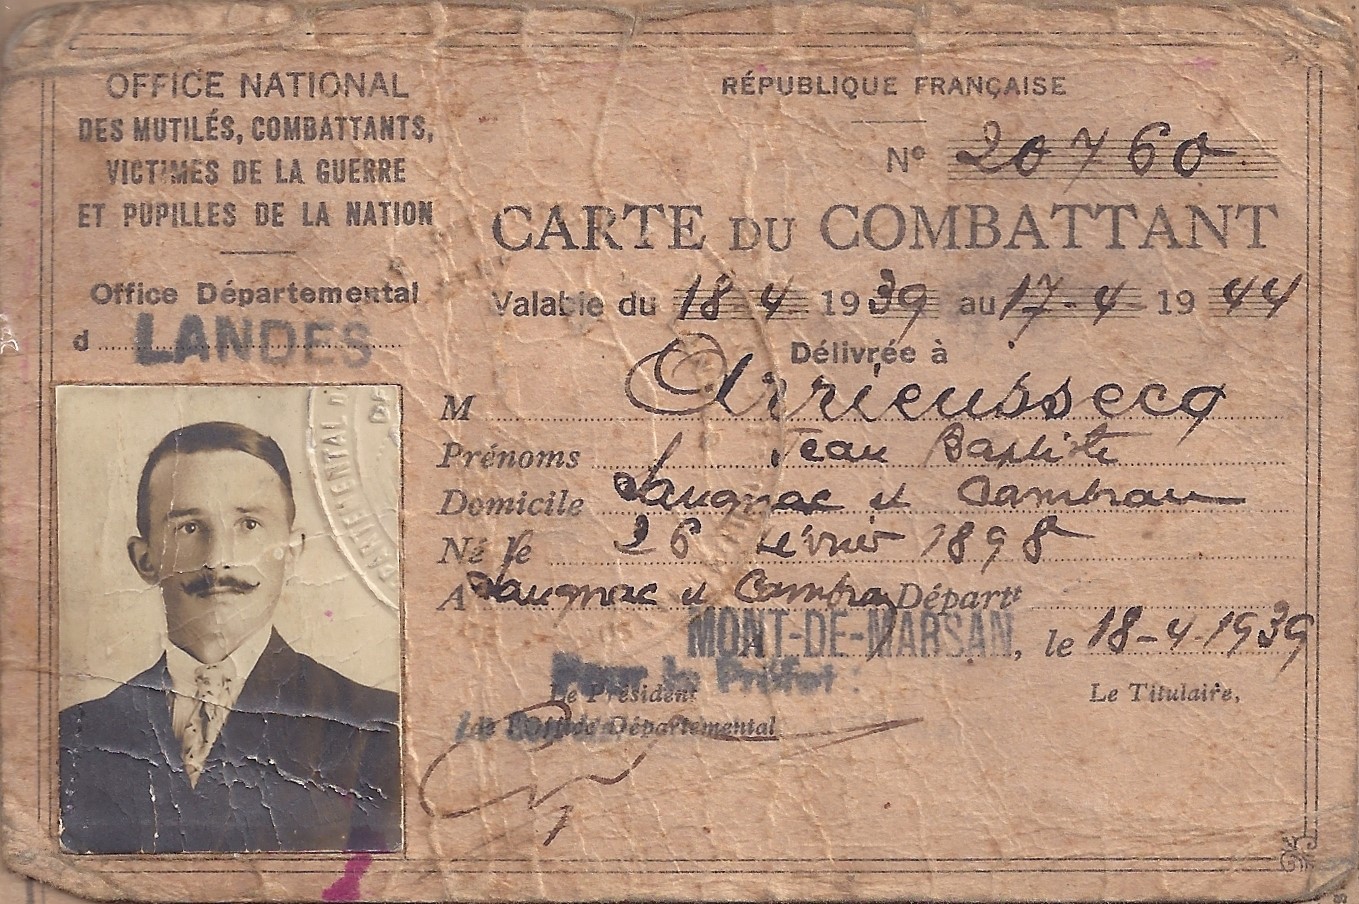 OFFICE NATIONAL
DES MUTILÉS, COMBATTANTS,
VICTIMES DE LA GUERRE
ET PUPILLES DE LA NATION
Office Départemental
d LANDES
RÉPUBLIQUE FRANÇAISE
N° 20760
CARTE DU COMBATTANT
Valable du 18-4 1939 au 17-4 1944
Délivrée à
M Arrieussecq
Prénoms Jean Baptiste
Domicile Saugnac et Cambran
Né le 26 février 1898
A Saugnac et Cambran Départt
MONT-DE-MARSAN, le 18-4-1939
Pour le Préfet :
Le Président
Départemental
Le Titulaire,